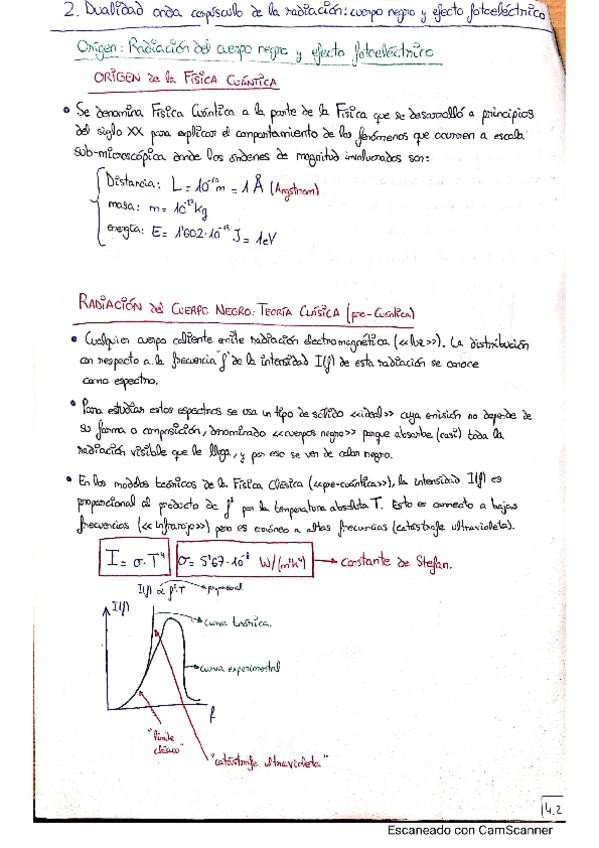 2. Dualidad onda corpúsculo de la radiación: cuerpo negro y efecto fotoeléctrico
Origen: Radiación del cuerpo negro y efecto fotoeléctrico
ORIGEN de la FÍSICA CUÁNTICA
• Se denomina Física Cuántica a la parte de la Física que se desarrolló a principios
del siglo XX para explicar el comportamiento de los fenómenos que ocurren a escala
sub-microscópica donde los órdenes de magnitud involucrados son:
Distancia: L = 10⁻¹⁰m = 1 Å (Angstrom)
masa: m = kg
energía: E = 1'602·10⁻¹⁹ J = 1eV
RADIACIÓN del CUERPO NEGRO: TEORÍA CLÁSICA (pre-Cuántica)
• Cualquier cuerpo caliente emite radiación electromagnética («luz»). La distribución
con respecto a la frecuencia f de la intensidad I(f) de esta radiación se conoce
como espectro.
• Para estudiar estos espectros se usa un tipo de sólido «ideal» cuya emisión no depende de
su forma o composición, denominado «cuerpos negro» porque absorbe (casi) toda la
radiación visible que le llega, y por eso se ven de color negro.
• En los modelos teóricos de la Física Clásica («pre-cuántica»), la intensidad I(f) es
proporcional al producto de f² por la temperatura absoluta T. Esto es correcto a bajas
frecuencias («infrarojo») pero es erróneo a altas frecuencias (catástrofe ultravioleta).
I = σ·T⁴ σ = 5'67·10⁻⁸ W/(m²K⁴) → constante de Stefan.
I(f) ∝ f²·T proporcional
I(f)
curva teórica.
curva experimental
f
"límite
clásico"
"catástrofe ultravioleta"
4.2
Escaneado con CamScanner